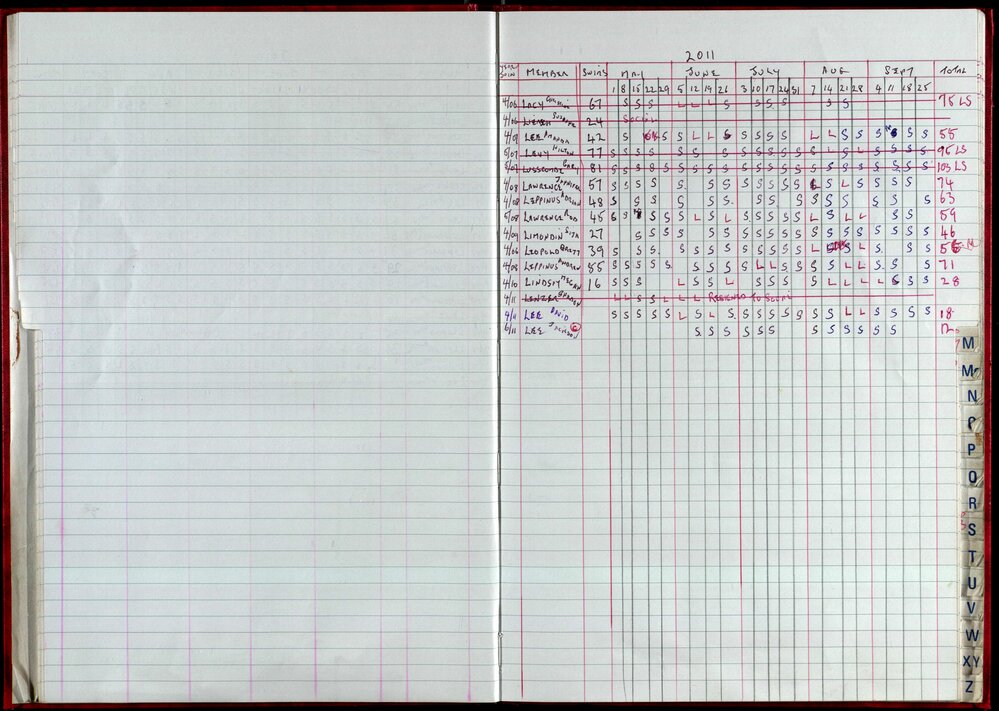 2011
YEAR JOIN MEMBER SWIMS MAY JUNE JULY AUG SEPT TOTAL
1 8 15 22 29 5 12 19 26 3 10 17 24 31 7 14 21 28 4 11 18 25
4/06 LACY 67 S S S L L L S S S S S S 75 LS
4/06 SUZANNE 24 SOCIAL
4/08 LEE AMANDA 42 S S S L L S S S S S L L S S S S S S 55
5/07 LEVY MILTON 77 96 LS
5/07 LUSCOMBE GARY 81 103 LS
4/08 LAWRENCE JENNIFER 57 S S S S S S S S S S S S S L S S S S 74
4/08 LEPPINUS ADRIAN 48 S S S S S S S S S S S S S S S S 63
5/08 LAWRENCE ROD 45 S S S S L S L S S S S S L S L L S S 59
4/09 LIMONDIN SITA 27 S S S S S S S S S S S S S S S S S S S S 46
4/06 LEOPOLD BRETT 39 S S S S S S S S S S S S L L S S S
4/08 LEPPINUS ANDREW 55 S S S S S S S S S L L S S S S L L S S S 71
4/10 LINDSAY MEGAN 16 S S S L S S L S S S S S L L L L L S S S 28
4/11 L L S S L L L RESIGNED TO SOCIAL
4/11 LEE DAVID S S S S S L S L S S S S S S S S L L S S S S 18
6/11 LEE JACKSON S S S S S S S S S S S S
M
Mc
N
O
P
Q
R
S
T
U
V
W
XY
Z